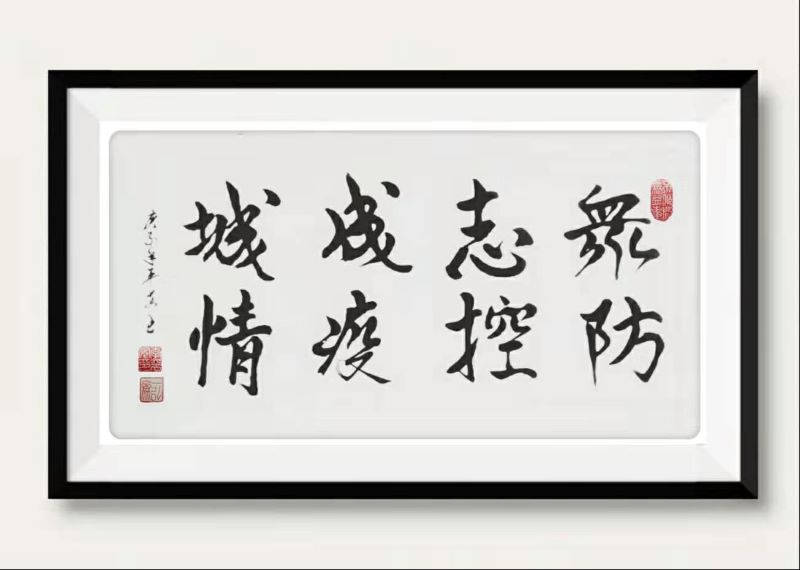 衆志成城
防控疫情
庚子年